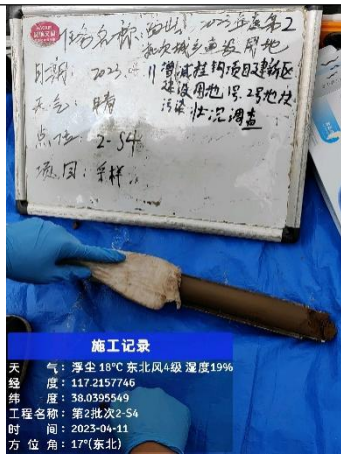 任务名称: 2023年度第2
批次城乡建设用地
日期: 2023.4.11
增减挂钩项目建新区
建设用地1号、2号地块
污染状况调查
天气: 晴
点位: 2-S4
项目: 采样
施工记录
天 气: 浮尘 18℃ 东北风4级 湿度19%
经 度: 117.2157746
纬 度: 38.0395549
工程名称: 第2批次2-S4
时 间: 2023-04-11
方 位 角: 17°(东北)